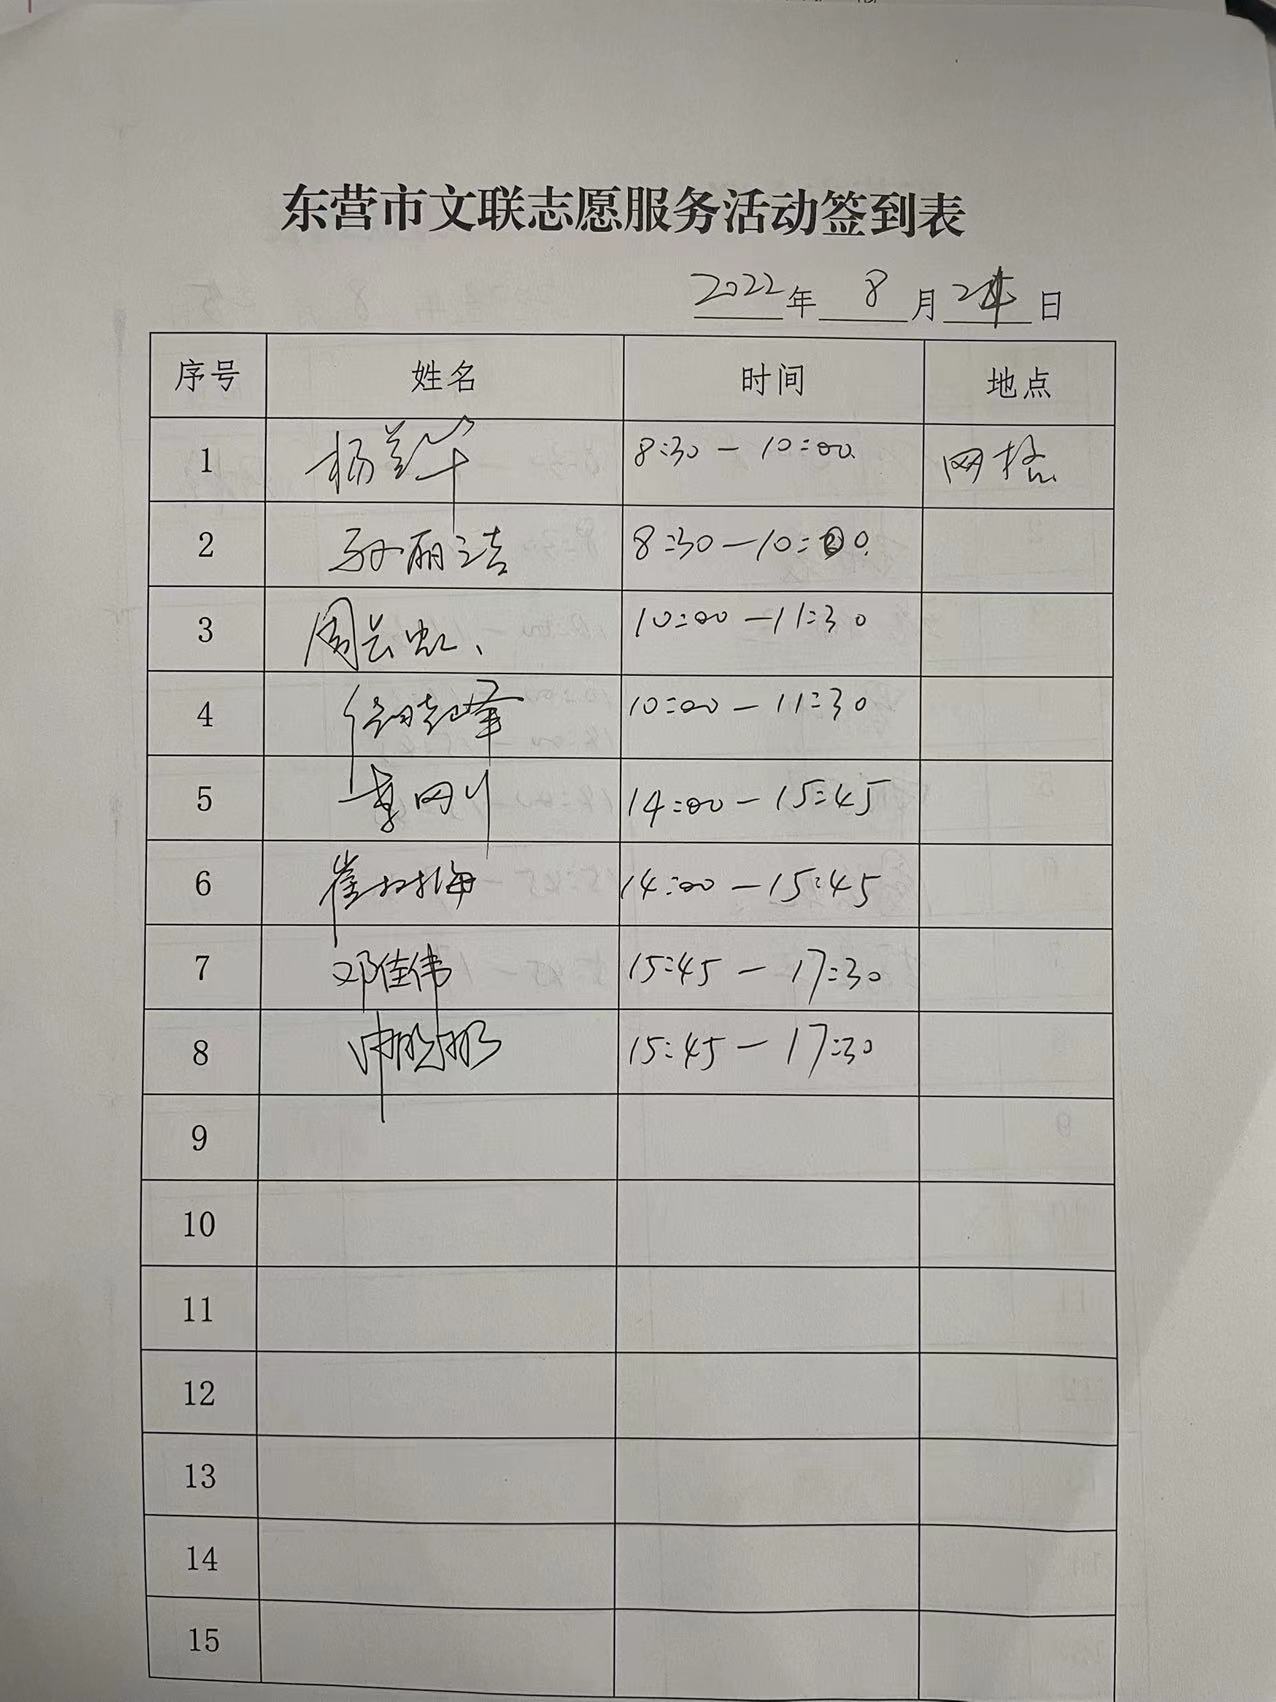 东营市文联志愿服务活动签到表
2022年 8月 24日
序号 姓名 时间 地点
1 杨兰华 8:30-10:00. 网格
2 孙丽洁 8:30-10:00.
3 周云虹、 10:00-11:30
4 任晓峰 10:00-11:30
5 李刚 14:00-15:45
6 崔树海 14:00-15:45
7 邓佳伟 15:45-17:30
8 15:45-17:30
9
10
11
12
13
14
15